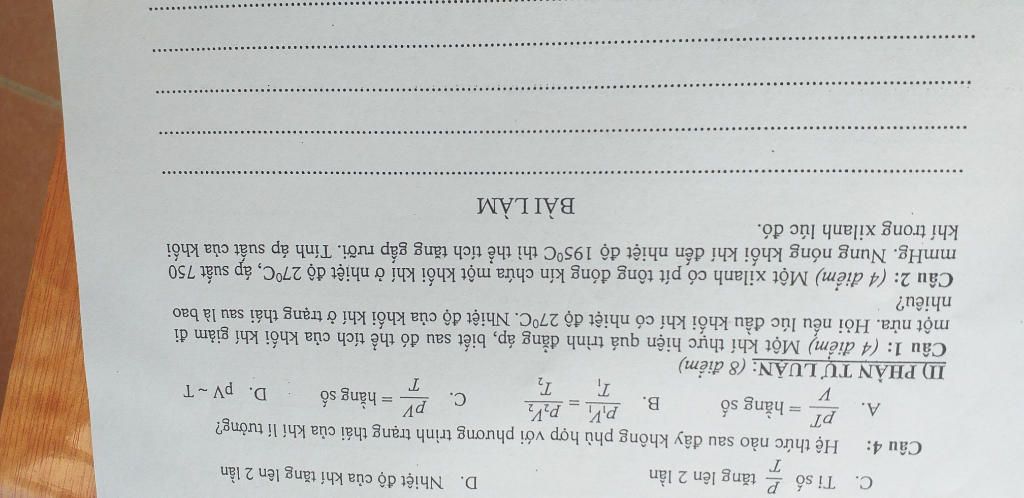 C. Tỉ số P/T tăng lên 2 lần D. Nhiệt độ của khí tăng lên 2 lần
Câu 4: Hệ thức nào sau đây không phù hợp với phương trình trạng thái của khí lí tưởng?
A. pT/V = hằng số B. p₁V₁/T₁ = p₂V₂/T₂ C. pV/T = hằng số D. pV ~ T
II) PHẦN TỰ LUẬN: (8 điểm)
Câu 1: (4 điểm) Một khí thực hiện quá trình đẳng áp, biết sau đó thể tích của khối khí giảm đi
một nửa. Hỏi nếu lúc đầu khối khí có nhiệt độ 27⁰C. Nhiệt độ của khối khí ở trạng thái sau là bao
nhiêu?
Câu 2: (4 điểm) Một xilanh có pít tông đóng kín chứa một khối khí ở nhiệt độ 27⁰C, áp suất 750
mmHg. Nung nóng khối khí đến nhiệt độ 195⁰C thì thể tích tăng gấp rưỡi. Tính áp suất của khối
khí trong xilanh lúc đó.
BÀI LÀM